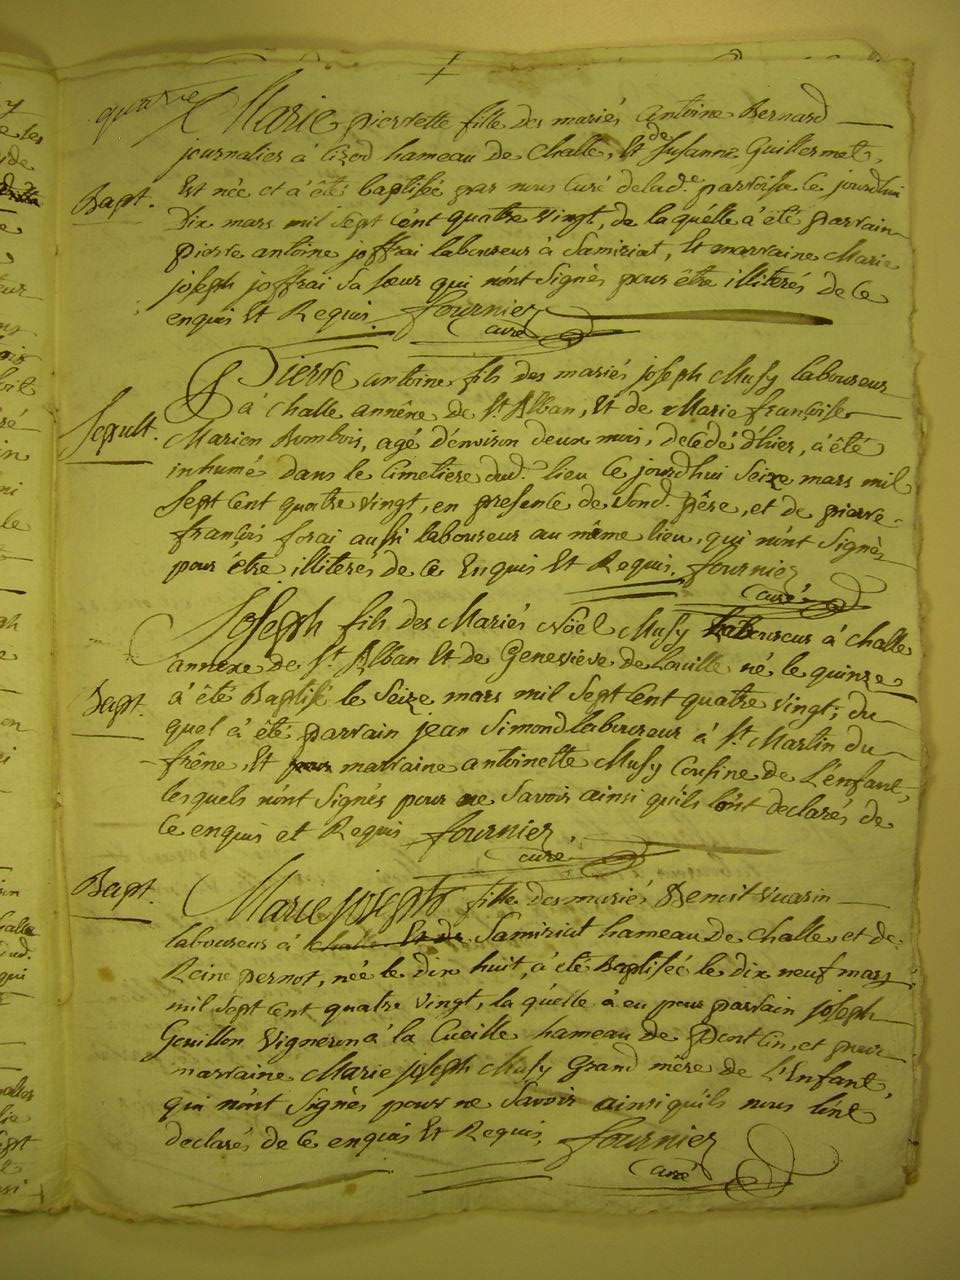 quatre
Marie pierrette fille des mariés antoine Bernard
journalier à Cizod hameau de Challe, et de Susanne Guillermet,
Bapt. Est née et à été baptisée par nous Curé de lad.e parroisse ce jourdhui
dix mars mil Sept cent quatre vingt, de la quélle à été parrain
pierre antoine joffrai laboureur à Samiriat, Et marraine Marie
joseph joffrai Sa Sœur qui n'ont Signés pour être illiterés de ce
enquis Et Requis. fournier
curé
Pierre antoine fils des mariés joseph Musy laboureur
à Challe annêxe de St. Alban, Et de Marie françoise
Sepult. Marion Bombois, agé d'environ deux mois, decédé d'hier, à été
inhumé dans le Cimetiere dud. lieu Ce jourdhui Seize mars mil
Sept Cent quatre vingt, en presence de Sond. pêre, et de pierre
françois forai aussi laboureur au même lieu, qui n'ont Signés
pour être illiterés de ce Enquis Et Requis. fournier
curé
Joseph fils des Mariés Nöel Musy laboureur à Challe
annexe de St. Alban Et de Geneviève de Laville né le quinze
Bapt. à été Baptisé le Seize mars mil Sept Cent quatre vingt, du
quel à été parrain jean Simond laboureur à St. Martin du
frêne, Et marraine antoinette Musy Cousine de L'enfant,
lesquels n'ont Signés pour ne Savoir ainsi qu'ils l'ont declarés de
Ce enquis et Requis fournier
curé
Bapt. Marie joseph fille des mariés Benoit Vuarin
laboureur à challe Et de Samiriat hameau de Challe, et de
Reine pernot, née le dix huit, à été Baptiséé le dix neuf mars
mil Sept Cent quatre vingt, la quélle à eu pour parrain joseph
Gouillon Vigneron à la Cueille hameau de Pont Cin, et pour
marraine Marie joseph Musy Grand mêre de L'Enfant,
qui n'ont Signés pour ne Savoir ainsi qu'ils nous l'ont
declarés de Ce enquis Et Requis, fournier
curé